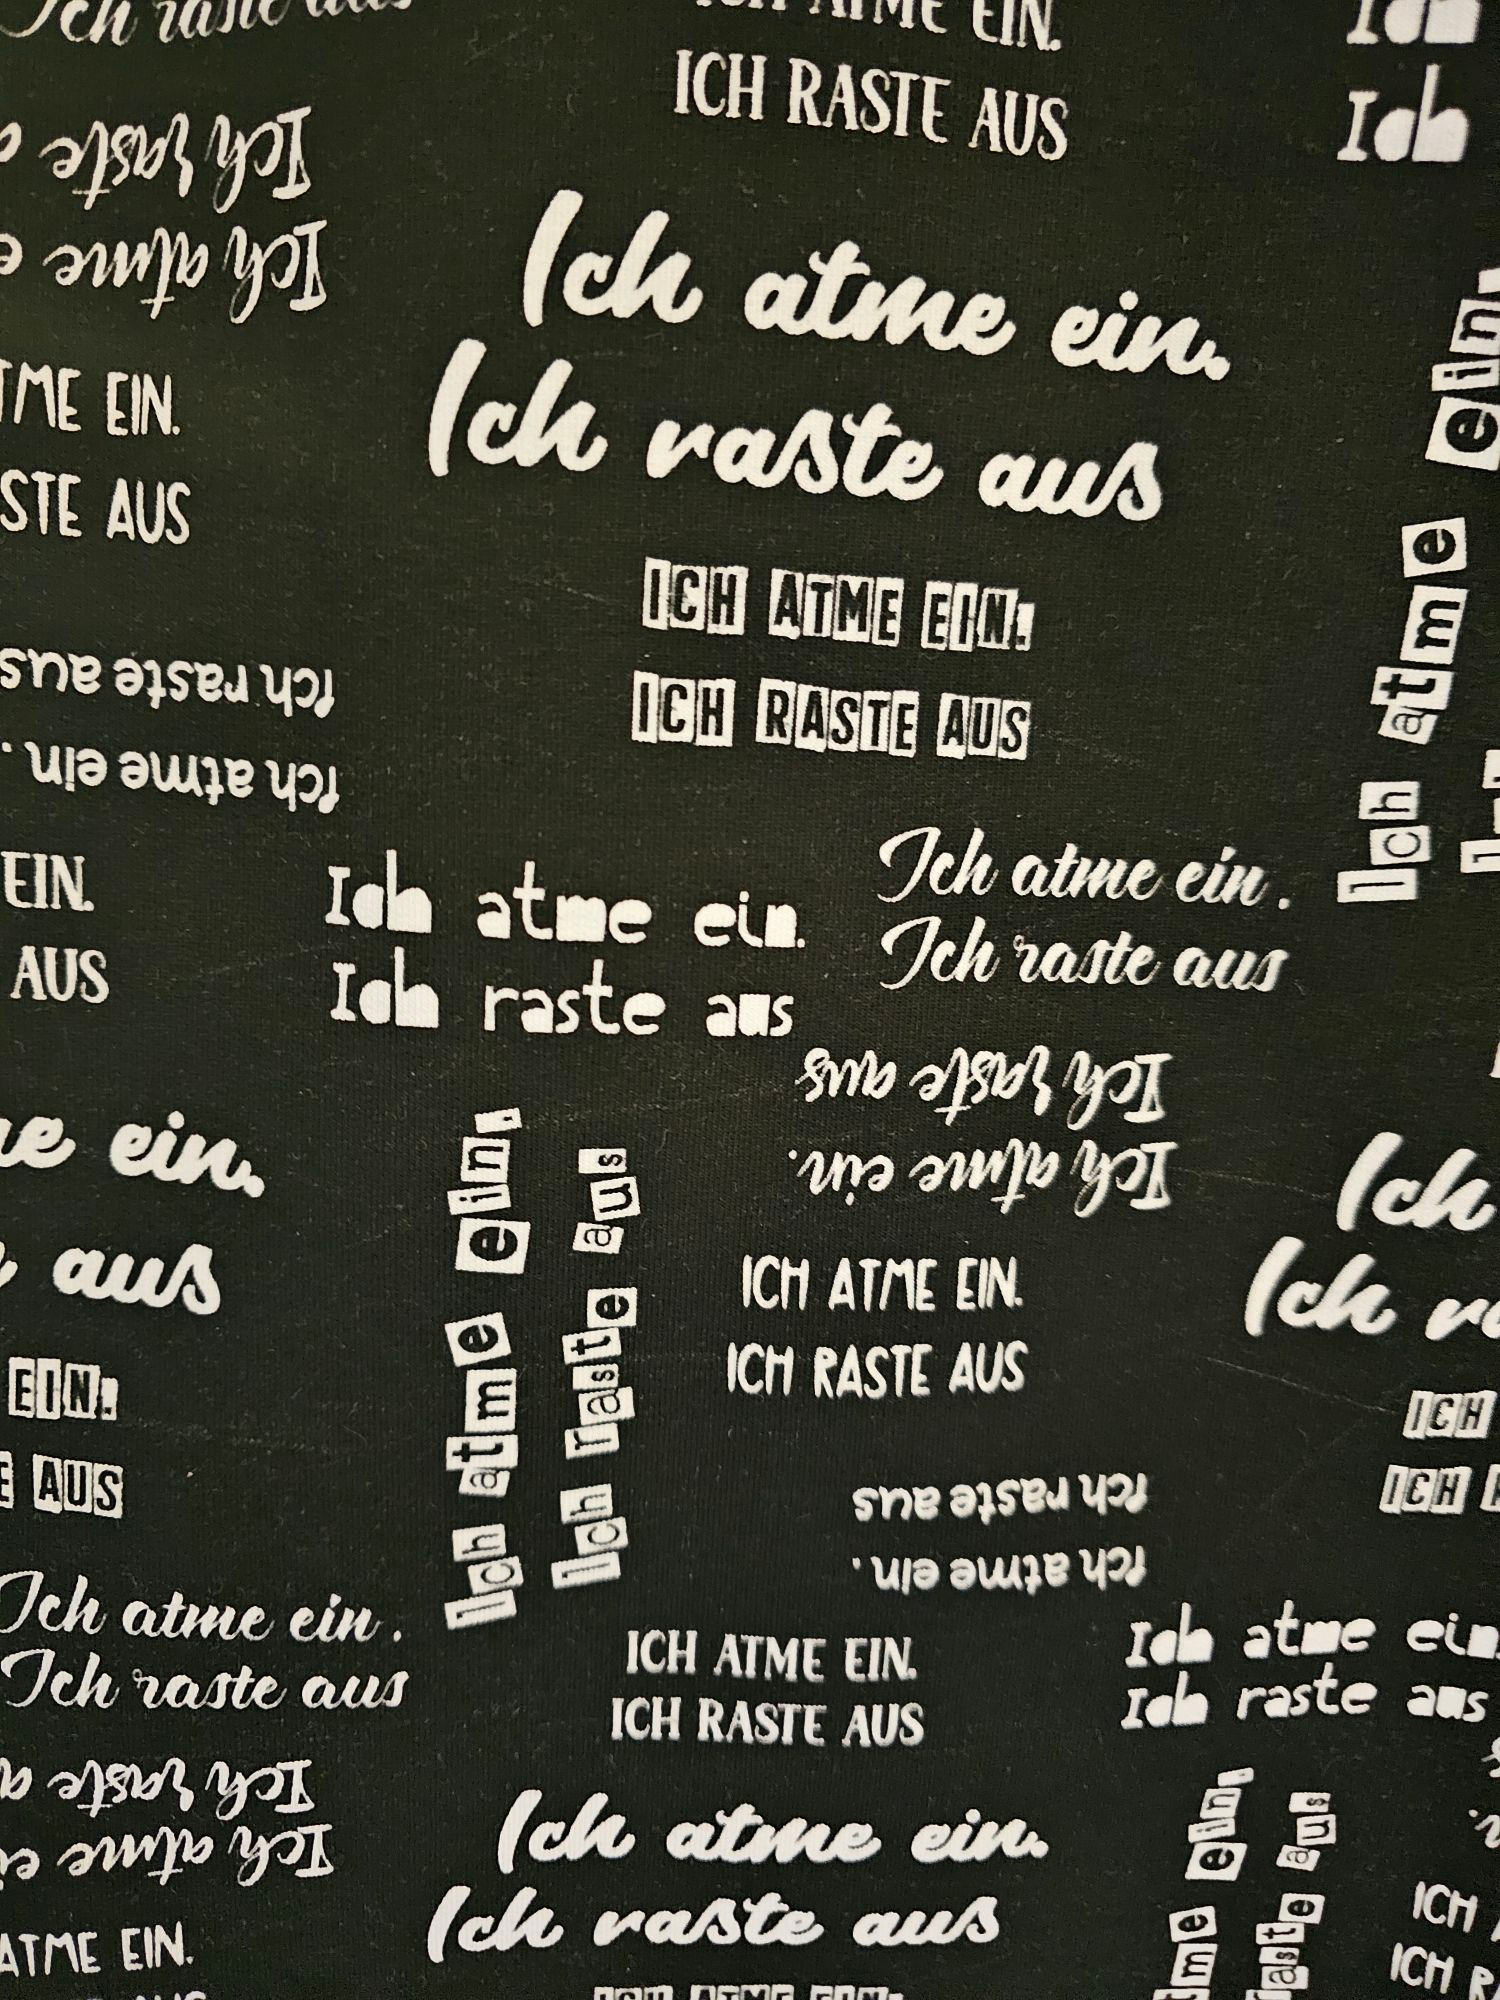 Ich raste aus
ICH ATME EIN.
ICH RASTE AUS
Ich
Ich
Ich raste
Ich atme
Ich atme ein.
Ich raste aus
EIN.
AUS
ICH ATME EIN.
ICH RASTE AUS
Ich raste aus
Ich atme ein .
Ich atme ein.
EIN.
AUS
Ich atme ein.
Ich raste aus
Ich atme ein .
Ich raste aus
Ich raste aus
Ich atme ein.
ein.
aus
Ich atme ein.
Ich raste aus
ICH ATME EIN.
ICH RASTE AUS
Ich
Ich
EIN.
AUS
ICH
ICH
Ich raste aus
Ich atme ein .
Ich atme ein .
Ich raste aus
ICH ATME EIN.
ICH RASTE AUS
Ich atme ein.
Ich raste aus
Ich raste
Ich atme
Ich atme ein.
Ich raste aus
ein.
aus
ATME EIN.
ICH
ICH
ICH ATME EIN.